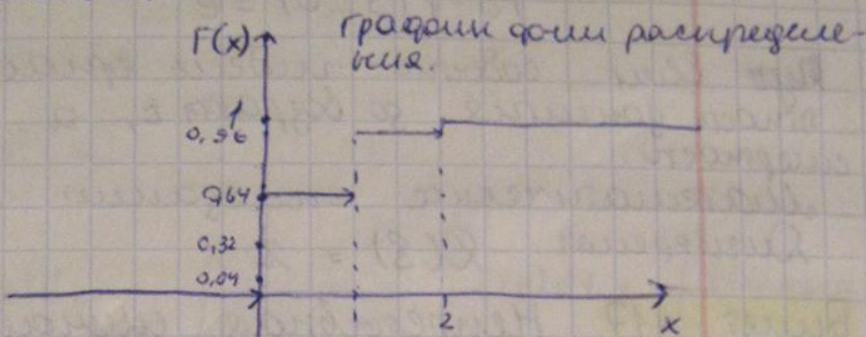 F(x)
График фции распределе-
ния.
1
0,96
0,64
0,32
0,04
2
x